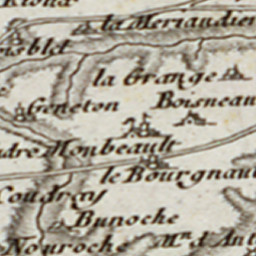 la Meriaudier
la Grange
Geneton Boisneau
Monbeault
le Bourgnau
Coudrays
Bunoche
Nouroche Mⁿ d'Ant